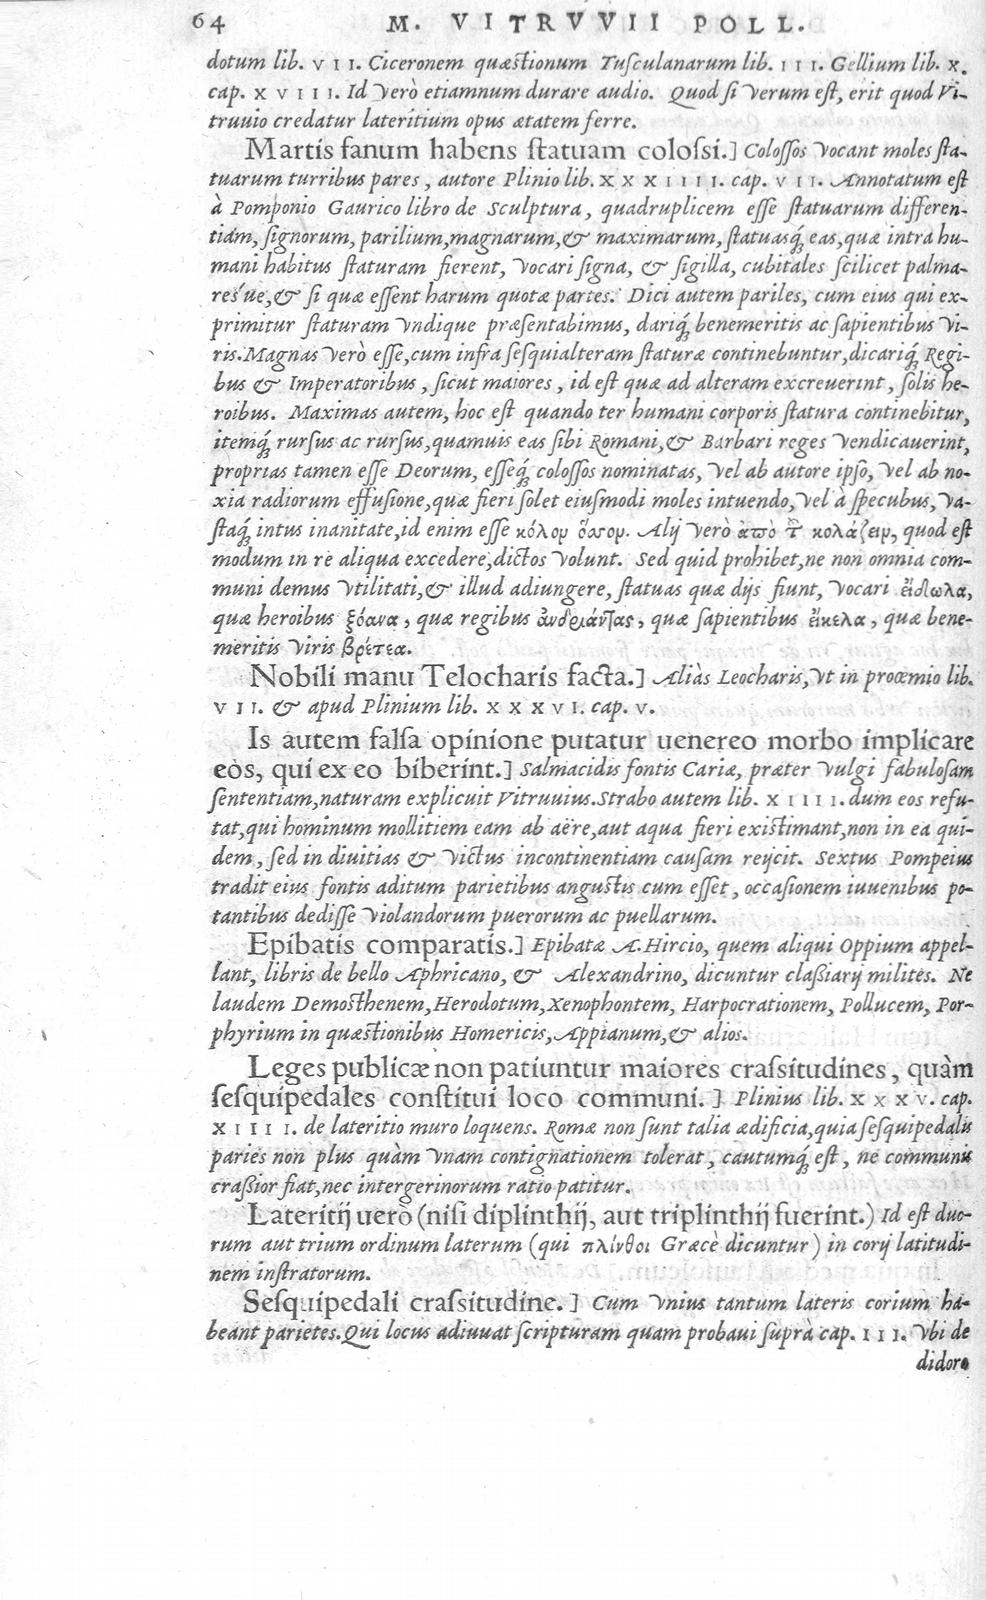 64 M. VITRVVII POLL.
dotum lib. VII. Ciceronem quæstionum Tuſculanarum lib. III. Gellium lib. X.
cap. XVIII. Id verò etiamnum durare audio. Quod ſi verum eſt, erit quod Vi-
truuio credatur lateritium opus ætatem ferre.
Martis fanum habens ſtatuam coloſsi.] Coloſſos vocant moles ſta-
tuarum turribus pares, autore Plinio lib. XXXIIII. cap. VII. Annotatum eſt
à Pomponio Gaurico libro de Sculptura, quadruplicem eſſe ſtatuarum differen-
tiam, ſignorum, parilium, magnarum, & maximarum, ſtatuasq́; eas, quæ intra hu-
mani habitus ſtaturam fierent, vocari ſigna, & ſigilla, cubitales ſcilicet palma-
res´ue, & ſi quæ eſſent harum quotæ partes. Dici autem pariles, cum eius qui ex-
primitur ſtaturam vndique præſentabimus, dariq́; benemeritis ac ſapientibus vi-
ris. Magnas verò eſſe, cum infra ſeſquialteram ſtaturæ continebuntur, dicariq́; Regi-
bus & Imperatoribus, ſicut maiores, id eſt quæ ad alteram excreuerint, ſolis he-
roibus. Maximas autem, hoc eſt quando ter humani corporis ſtatura continebitur,
itemq́; rurſus ac rurſus, quamuis eas ſibi Romani, & Barbari reges vendicauerint,
proprias tamen eſſe Deorum, eſſeq́; coloſſos nominatas, vel ab autore ipſo, vel ab no-
xia radiorum effuſione, quæ fieri ſolet eiuſmodi moles intuendo, vel à ſpecubus, va-
ſtaq́; intus inanitate, id enim eſſe κόλον ὄασον. Alij verò ἀπὸ τ̃ κολάζειν, quod eſt
modum in re aliqua excedere, dictos volunt. Sed quid prohibet, ne non omnia com-
muni demus vtilitati, & illud adiungere, ſtatuas quæ dijs fiunt, vocari ἔιδωλα,
quæ heroibus ξόανα, quæ regibus ἀνδριάντας, quæ ſapientibus ἔικελα, quæ bene-
meritis viris βρέτεα.
Nobili manu Telocharis facta.] Aliàs Leocharis, vt in proœmio lib.
VII. & apud Plinium lib. XXXVI. cap. V.
Is autem falſa opinione putatur uenereo morbo implicare
eos, qui ex eo biberint.] Salmacidis fontis Cariæ, præter vulgi fabuloſam
ſententiam, naturam explicuit Vitruuius. Strabo autem lib. XIIII. dum eos refu-
tat, qui hominum mollitiem eam ab aëre, aut aqua fieri exiſtimant, non in ea qui-
dem, ſed in diuitias & victus incontinentiam cauſam reijcit. Sextus Pompeius
tradit eius fontis aditum parietibus anguſtis cum eſſet, occaſionem iuuenibus po-
tantibus dediſſe violandorum puerorum ac puellarum.
Epibatis comparatis.] Epibatæ A. Hircio, quem aliqui Oppium appel-
lant, libris de bello Aphricano, & Alexandrino, dicuntur claßiarij milites. Ne
laudem Demoſthenem, Herodotum, Xenophontem, Harpocrationem, Pollucem, Por-
phyrium in quæſtionibus Homericis, Appianum, & alios.
Leges publicæ non patiuntur maiores craſsitudines, quàm
ſeſquipedales conſtitui loco communi.] Plinius lib. XXXV. cap.
XIIII. de lateritio muro loquens. Romæ non ſunt talia ædificia, quia ſeſquipedalis
paries non plus quàm vnam contignationem tolerat, cautumq́; eſt, ne communis
craßior fiat, nec intergerinorum ratio patitur.
Lateritij uerò (niſi diplinthij, aut triplinthij fuerint.) Id eſt duo-
rum aut trium ordinum laterum (qui πλίνθοι Græcè dicuntur) in corij latitudi-
nem inſtratorum.
Seſquipedali craſsitudine.] Cum vnius tantum lateris corium ha-
beant parietes. Qui locus adiuuat ſcripturam quam probaui ſuprà cap. III. Vbi de
didoro